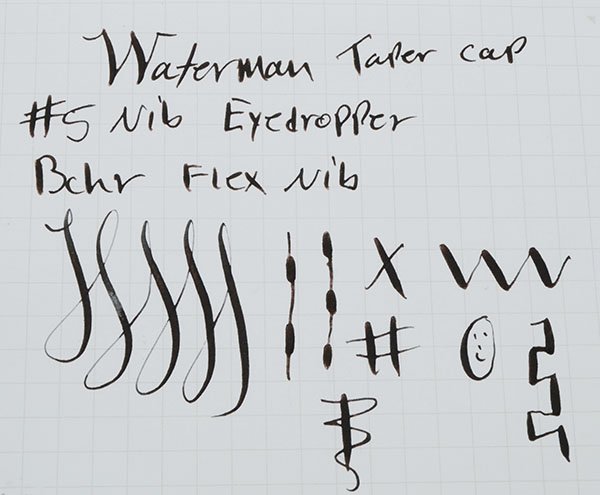 Waterman Taper cap
#5 Nib Eyedropper
Bchr Flex Nib
X
#